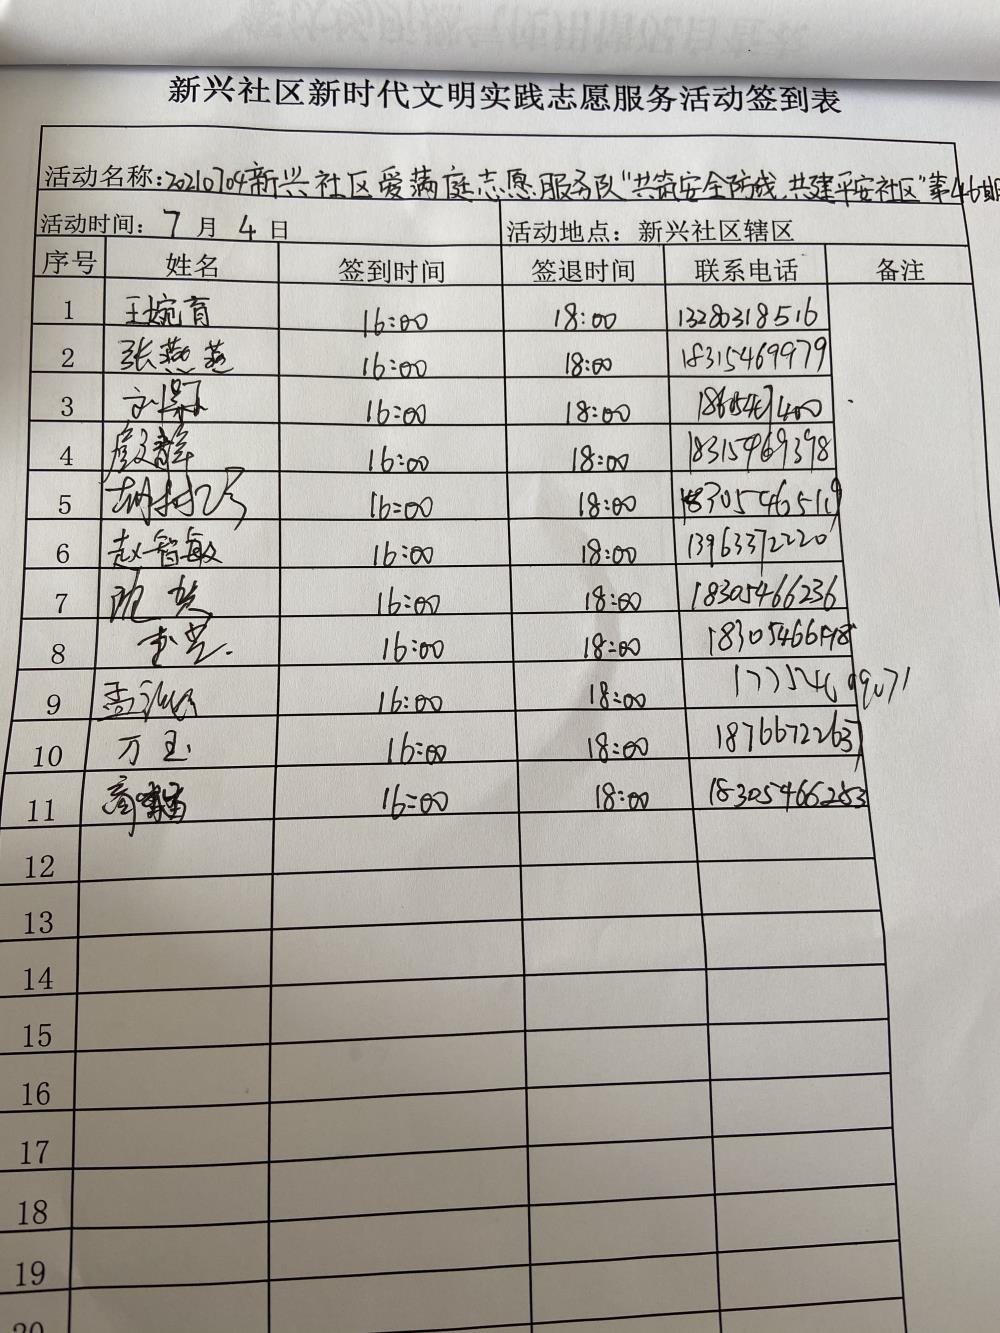 新兴社区新时代文明实践志愿服务活动签到表
活动名称:20210704新兴社区爱满庭志愿服务队"共筑安全防线,共建平安社区"第46期
活动时间: 7 月 4 日 活动地点: 新兴社区辖区
序号 姓名 签到时间 签退时间 联系电话 备注
1 王婉育 16:00 18:00 13280318516
2 张燕燕 16:00 18:00 18315469979
3 16:00 18:00
4 16:00 18:00 18315469398
5 16:00 18:00
6 赵智敏 16:00 18:00 13963372220
7 16:00 18:00 18305466236
8 16:00 18:00
9 孟 16:00 18:00
10 万玉 16:00 18:00 18766722637
11 16:00 18:00 18305466253
12
13
14
15
16
17
18
19
20